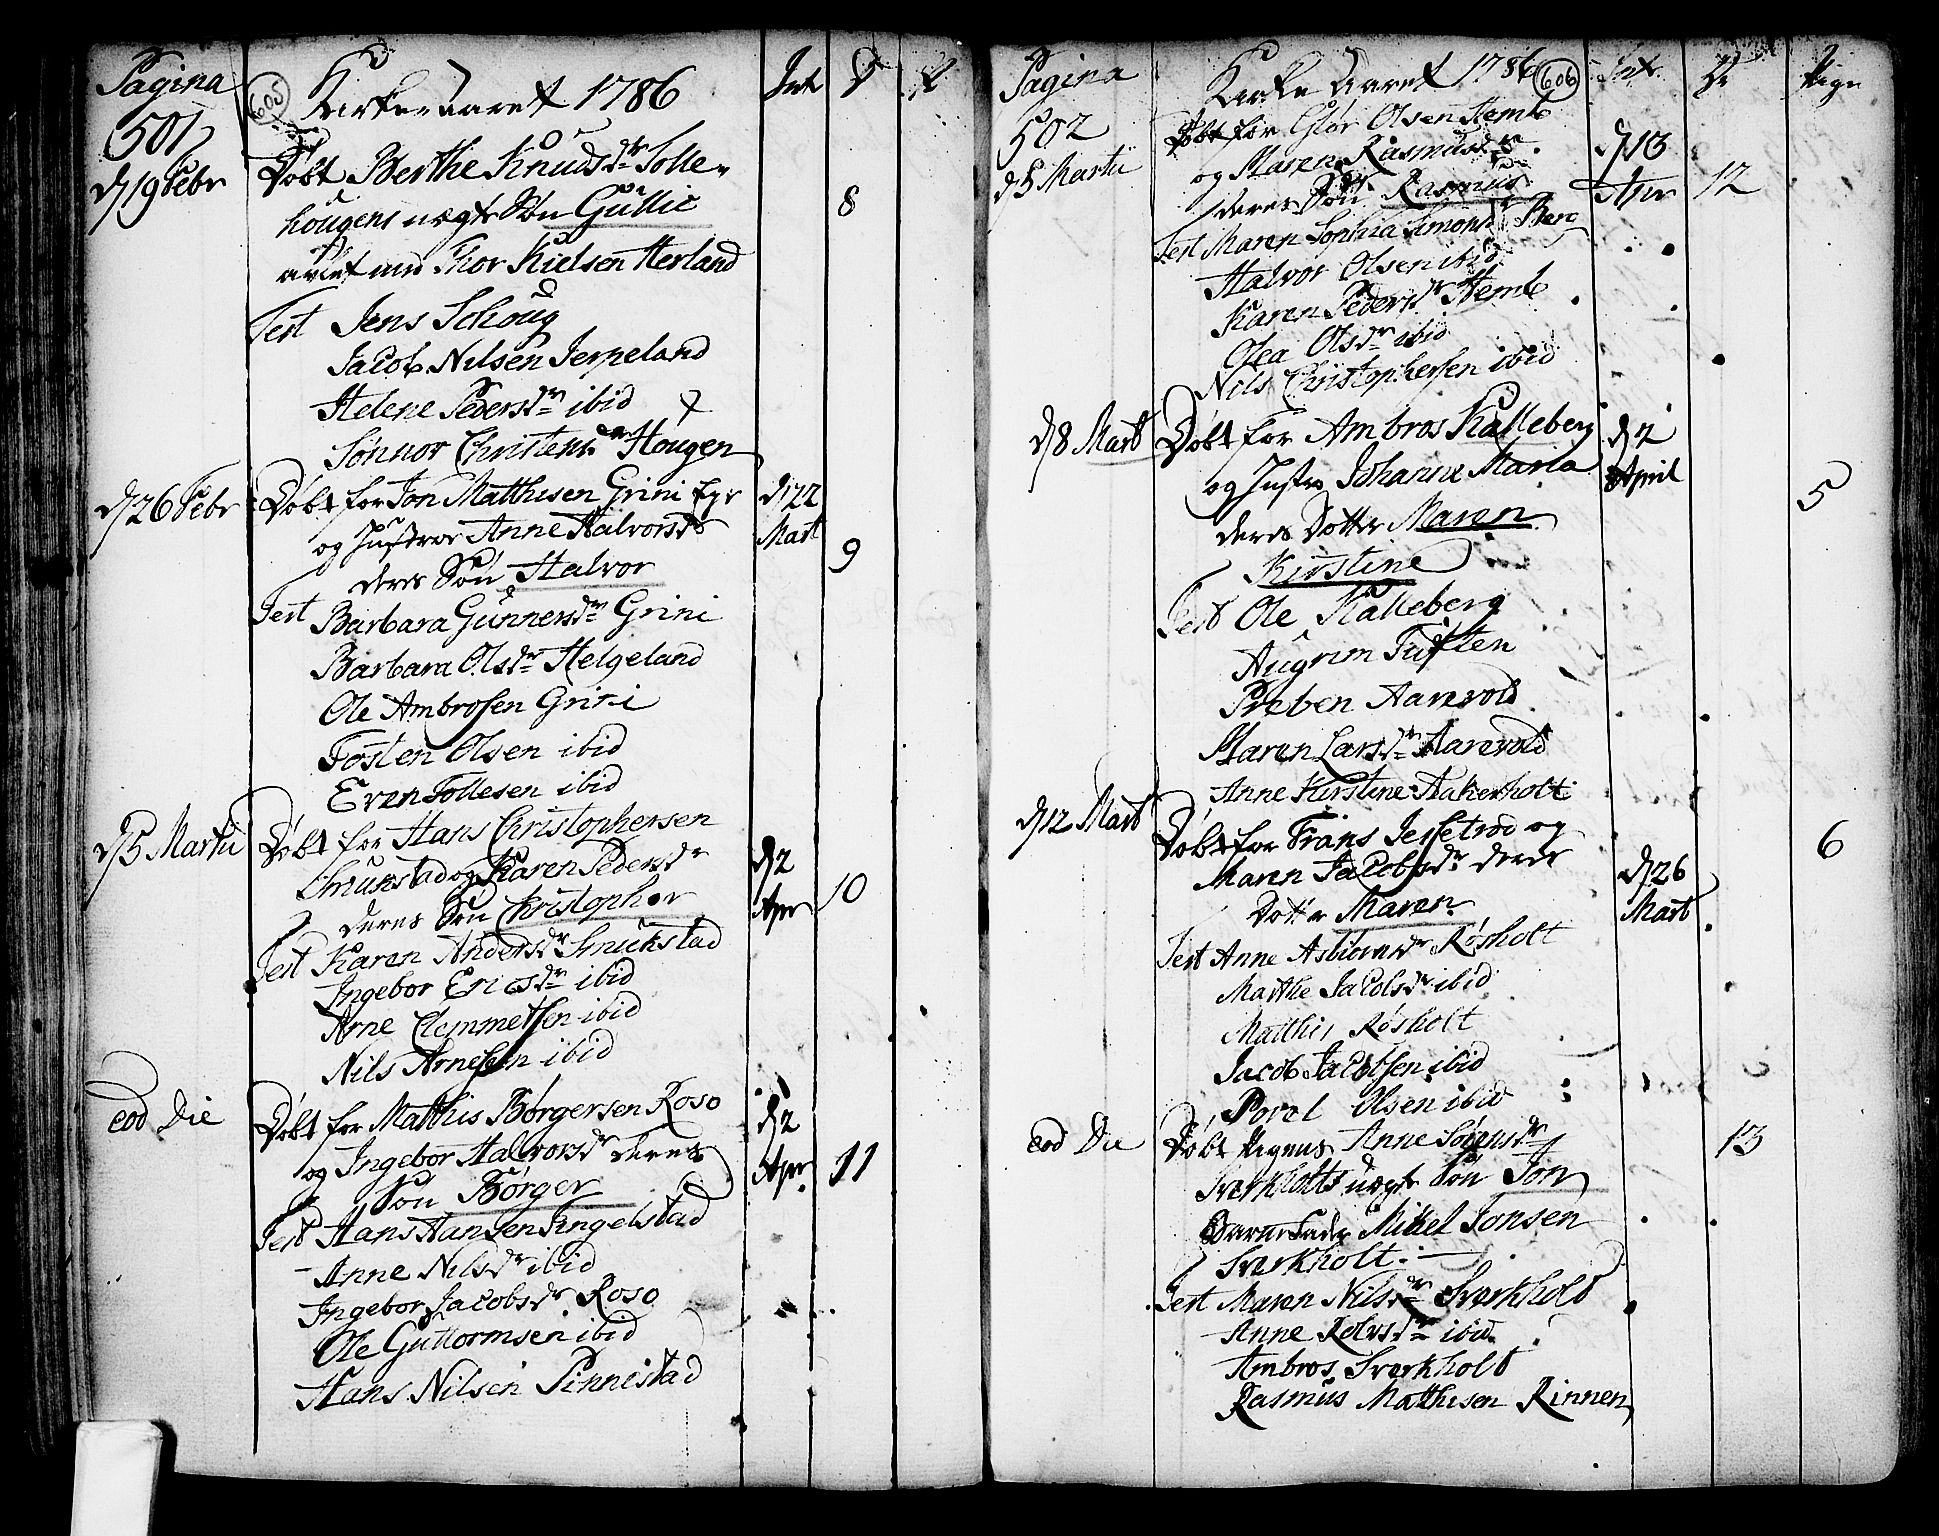 Pagina
501
605
Kirke aaret 1786
Int D P
d 19 Febr
Døbt Berthe Knudsdr Solle-
hougens uægte Søn Gullic
8
avlet med Thor Kielsen Herland
Test Jens Schoug
Jacob Nilsen Jerpeland
Helene Pedersdr ibid
Sønnor Christensdr Hougen
d 26 Febr
Døbt for Jon Matthisen Grini Eje
d 22
og Hustroe Anne Halvorsdr
Mart
9
deres Søn Halvor
Test Barbara Gunnersdr Grini
Barbara Olsdr Helgeland
Ole Ambrosen Grini
Tosten Olsen ibid
Even Tollesen ibid
d 5 Martii
Døbt for Hans Christophersen
d 2
Smukstad og Karen Pedersdr
Apr
10
deres Søn Christopher
Test Karen Andersdr Smukstad
Ingebor Ericsdr ibid
Arne Clemmetsen ibid
Nils Arnesen ibid
eod Die
Døbt for Matthis Børgersen Roso
d 2
og Ingebor Halvorsdr deres
Apr
11
Søn Børger
Test Hans Hansen Engelstad
Anne Nilsdr ibid
Ingebor Jacobsdr Roso
Ole Guttormsen ibid
Hans Nilsen Pinnestad
Pagina
502
Kirke Aaret 1786
606
Int Dr Pige
d 5 Martii
Døbt for Glør Olsen Hemb
og Maren Rasmusdr
d 13
deres Søn Rasmus
Apr
12
Test Maren Sophia Simonsdr Berg
Halvor Olsen ibid
Karen Pedersdr Hemb
Olea Olsdr ibid
Nils Christophersen ibid
d 8 Mart
Døbt for Ambros Kalleberg
d 2
og Hustro Johanne Maria
April
5
deres Dotter Maren
Kirstine
Test Ole Kalleberg
Augrim Tuften
Preben Aarevold
Maren Larsdr Aarevold
Anne Kirstine Aakerholt
d 12 Mart
Døbt for Frans Jersetrod og
6
Maren Jacobsdr deres
d 26
Dotter Maren
Mart
Test Anne Asbiørnsdr Røsholt
Marthe Jacobsdr ibid
Matthis Røsholt
Jacob Jacobsen ibid
Povel Olsen ibid
eod Die
Døbt Pigens Anne Sørensdr
13
Sverkholts uægte Søn Jon
Barne Fader Mikel Jonsen
Sverkholt
Test Maren Nilsdr Sverkholt
Anne Rolvsdr ibid
Ambros Sverkholt
Rasmus Matthisen Rinnen